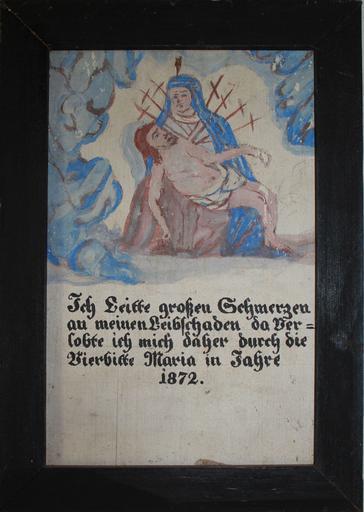 Ich Leitte großen Schmerzen
an meinen Leibschaden da Ver=
lobte ich mich daher durch die
Vierbitte Maria in Jahre
1872.